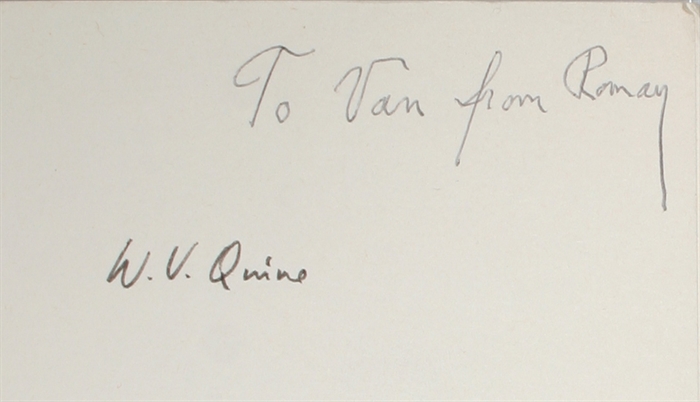 To Van from Roman
W. V. Quine